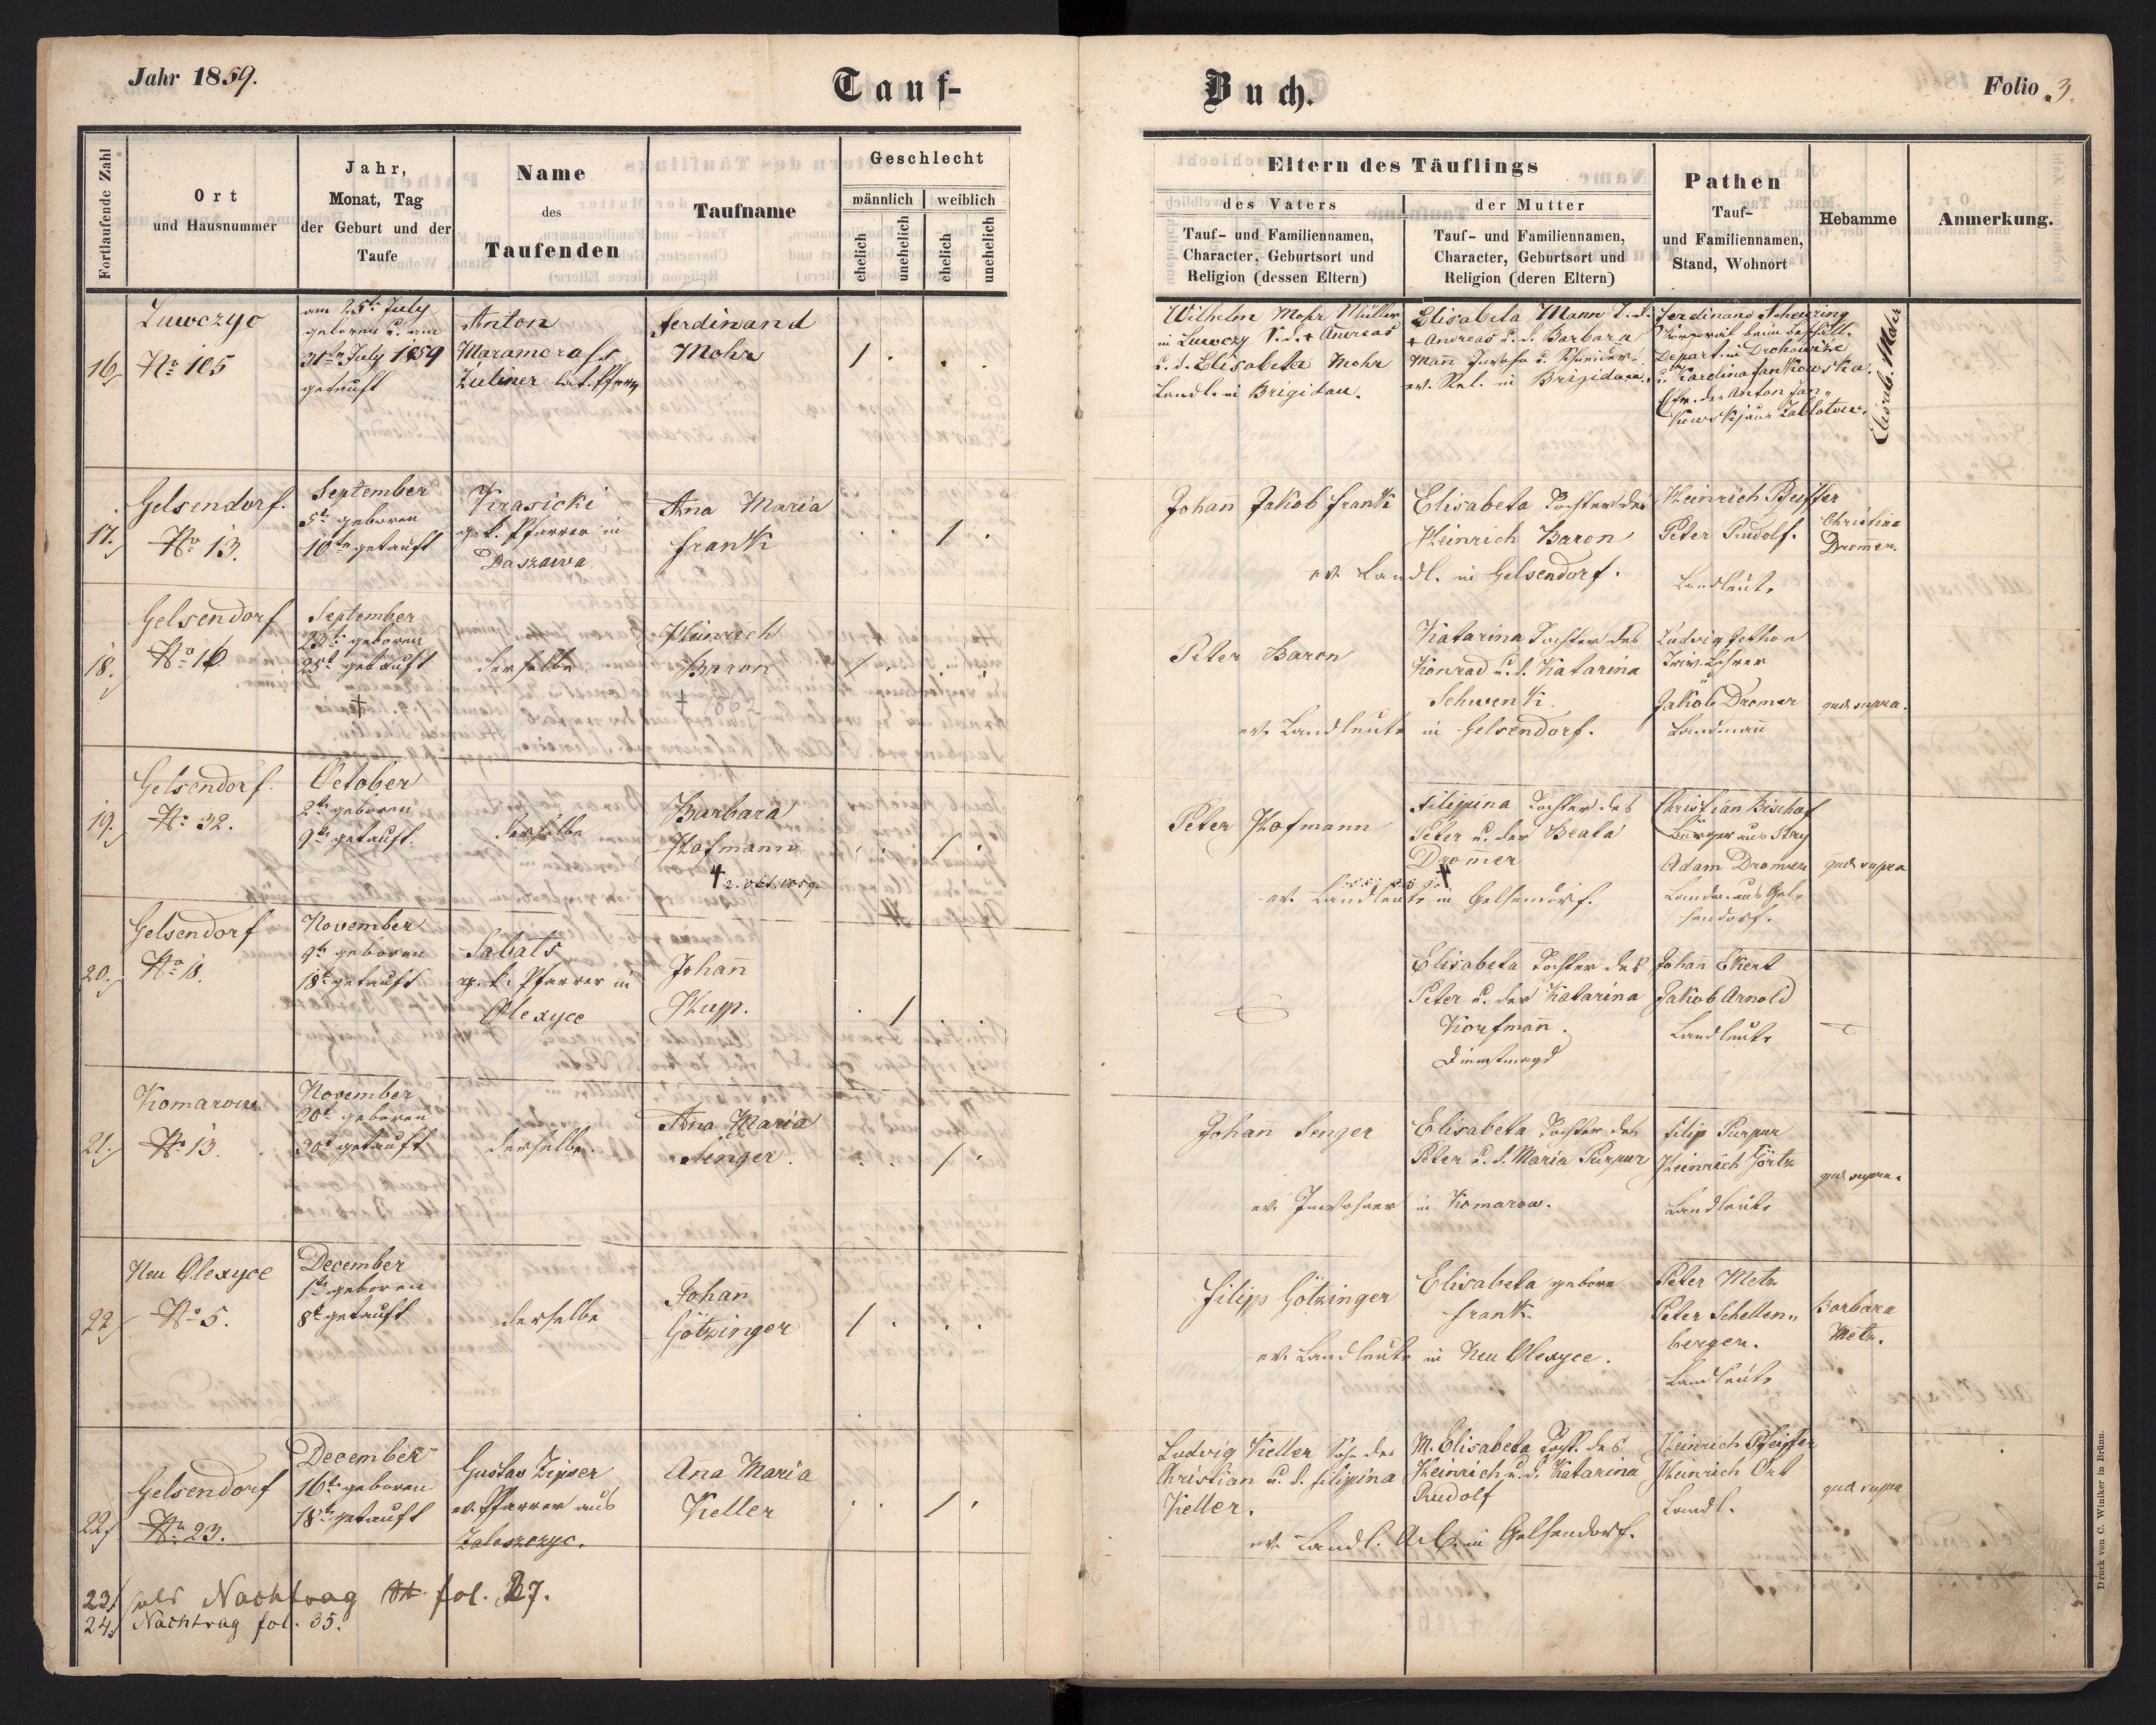 Jahr 1859.
Tauf-
Buch.
Folio 3.
Fortlaufende Zahl
Ort
und Hausnummer
Jahr,
Monat, Tag
der Geburt und der
Taufe
Name
des
Taufenden
Taufname
Geschlecht
männlich
weiblich
ehelich
unehelich
ehelich
unehelich
Eltern des Täuflings
des Vaters
Tauf- und Familiennamen,
Character, Geburtsort und
Religion (dessen Eltern)
der Mutter
Tauf- und Familiennamen,
Character, Geburtsort und
Religion (deren Eltern)
Pathen
Tauf-
und Familiennamen,
Stand, Wohnort
Hebamme
Anmerkung.
16.
Luwczyc
No 105
am 25t July
geboren u. am
31tn July 1859
getauft
Anton
Maramoraß
Zuliner lat. Pfarr
Ferdinand
Mohr
1 . . .
Wilhelm Mohr Müller
in Luwczy S. d. + Andreas
u. d. Elisabeta Mohr
Landl. in Brigidau.
Elisabeta Mann T. d.
+ Andreas u. d. Barbara
Mann
ev. Rel. in Brigidau.
Ferdinand Scheuring
Korporal beim
Depart. in Drohowize
u. Karolina Jankowska
des Anton Jan„
kowski aus Zablotowce.
Elisab. Moser
17.
Gelsendorf.
No 13.
September
5t geboren
10tn getauft
Krasicki
g. k. Pfarrer in
Daszawa
Ana Maria
Frank
. . 1 .
Johann Jakob Frank
Elisabeta Tochter des
Heinrich Baron
ev. Landl. in Gelsendorf.
Heinrich
Peter Rudolf.
Landleute
Christina
Dromer.
18.
Gelsendorf
No 16
September
geboren
25t getauft
†
derselbe
Heinrich
Baron
† 1862
1 . . .
Peter Baron
Katarina Tochter des
Konrad u. d. Katarina
Schwenk.
ev. Landleute in Gelsendorf.
Ludwig Jethon
Triv. Lehrer
Jakob Dromer
Landmann
quä supra.
19.
Gelsendorf.
No 32.
October
2tn geboren
9tn getauft.
derselbe
Barbara
Hofmann
† 2. Okt. 1859.
. . 1 .
Peter Hofmann
Filippina Tochter des
Peter u. der Beata
Dromer
†
ev. Landleute in Gelsendorf.
Christian Bischof
Bürger aus Stry
Adam Dromer
Landm. aus Gel„
sendorf.
quä supra
20.
Gelsendorf
No 18.
November
9tn geboren
18t getauft
Sabats
g. k. Pfarrer in
Olexyce
Johann
Hupp.
. 1 . .
Elisabeta Tochter des
Peter u. der Katarina
Koufmann.
Dienstmagd
Johann Ekert
Jakob Arnold
Landleute
21.
Komarow
No 13.
November
20t geboren
30t getauft
derselbe.
Ana Maria
Senger.
. . 1 .
Johann Senger
Elisabeta Tochter des
Peter u. d. Maria Purpur
ev. Inwohner in Komarow.
Filip Purpur
Heinrich Görtz
Landleute
quä supra.
22.
Neu Olexyce
No 5.
December
1tn geboren
8t getauft
derselbe
Johann
Götzinger
1 . . .
Filipp Götzinger
Elisabeta geborne
Frank.
ev. Landleute in Neu Olexyce.
Peter Metz
Peter Schellen„
berger.
Landleute
Barbara
Metz.
22.
Gelsendorf
No 23.
December
16tn geboren
18tn getauft
Gustav Zipser
ev. Pfarrer aus
Zaleszczyc.
Ana Maria
Keller
. . 1 .
Ludwig Keller Sohn des
Christian u. d. Filipina
Keller.
M. Elisabeta Tocht. des
Heinrich u. d. Katarina
Rudolf
ev. Landl. in Gelsendorf.
Heinrich Pfeiffer
Heinrich Ort
Landl.
quä supra
23. als Nachtrag fol. 27.
24. Nachtrag fol. 35.
Druck von C. Winiker in Brünn.